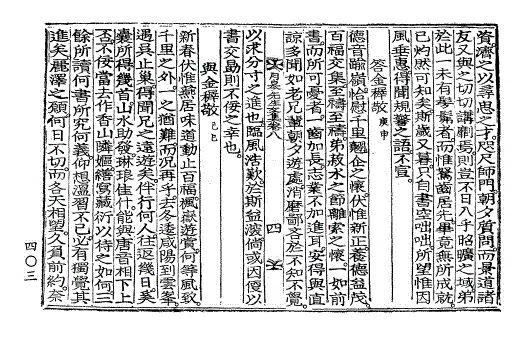 資濟之以尋思之才咫尺師門朝夕質問而景道諸
友又與之切切講劘焉則豈不日入乎昭曠之域弟
於此一未有學者而惟鬂齒居先畢竟無所成就
已灼然可知矣斯歲又暮只自書空咄咄所望惟因
風垂惠得聞規警之語不宣
答金穉敬 庚申
德音踰嶺恰慰千里翹企之懷伏惟新正養德益茂
百福交集至禱至禱弟菽水之節離索之懷一如前
書而所可憂者一齒加長志業不加進耳安得與直
諒多聞如老兄輩朝夕遊處消磨鄙吝於不知不覺
月皐先生文集卷八 四
以求分寸之進也臨風浩歎於斯益深倘或因便以
書交勗則不佞之幸也
與金穉敬 己巳
新春伏惟燕居味道動止百福楓嶽遊賞何等風致
千里之外一之猶難而況再乎去冬逶咸陽到雲峯
遇吳止巢得聞兄之遠遊矣伴行何人往返幾日奚
囊所得幾首山水助發琳琅佳什能與唐音相上下
否不佞當去作香山隣嫗繕寫藏衍以待之如何三
餘所讀何書所究何義仰想溫習不已必有獨覺其
進矣麗澤之願何日不切而各天相望久負前約奈
四〇三